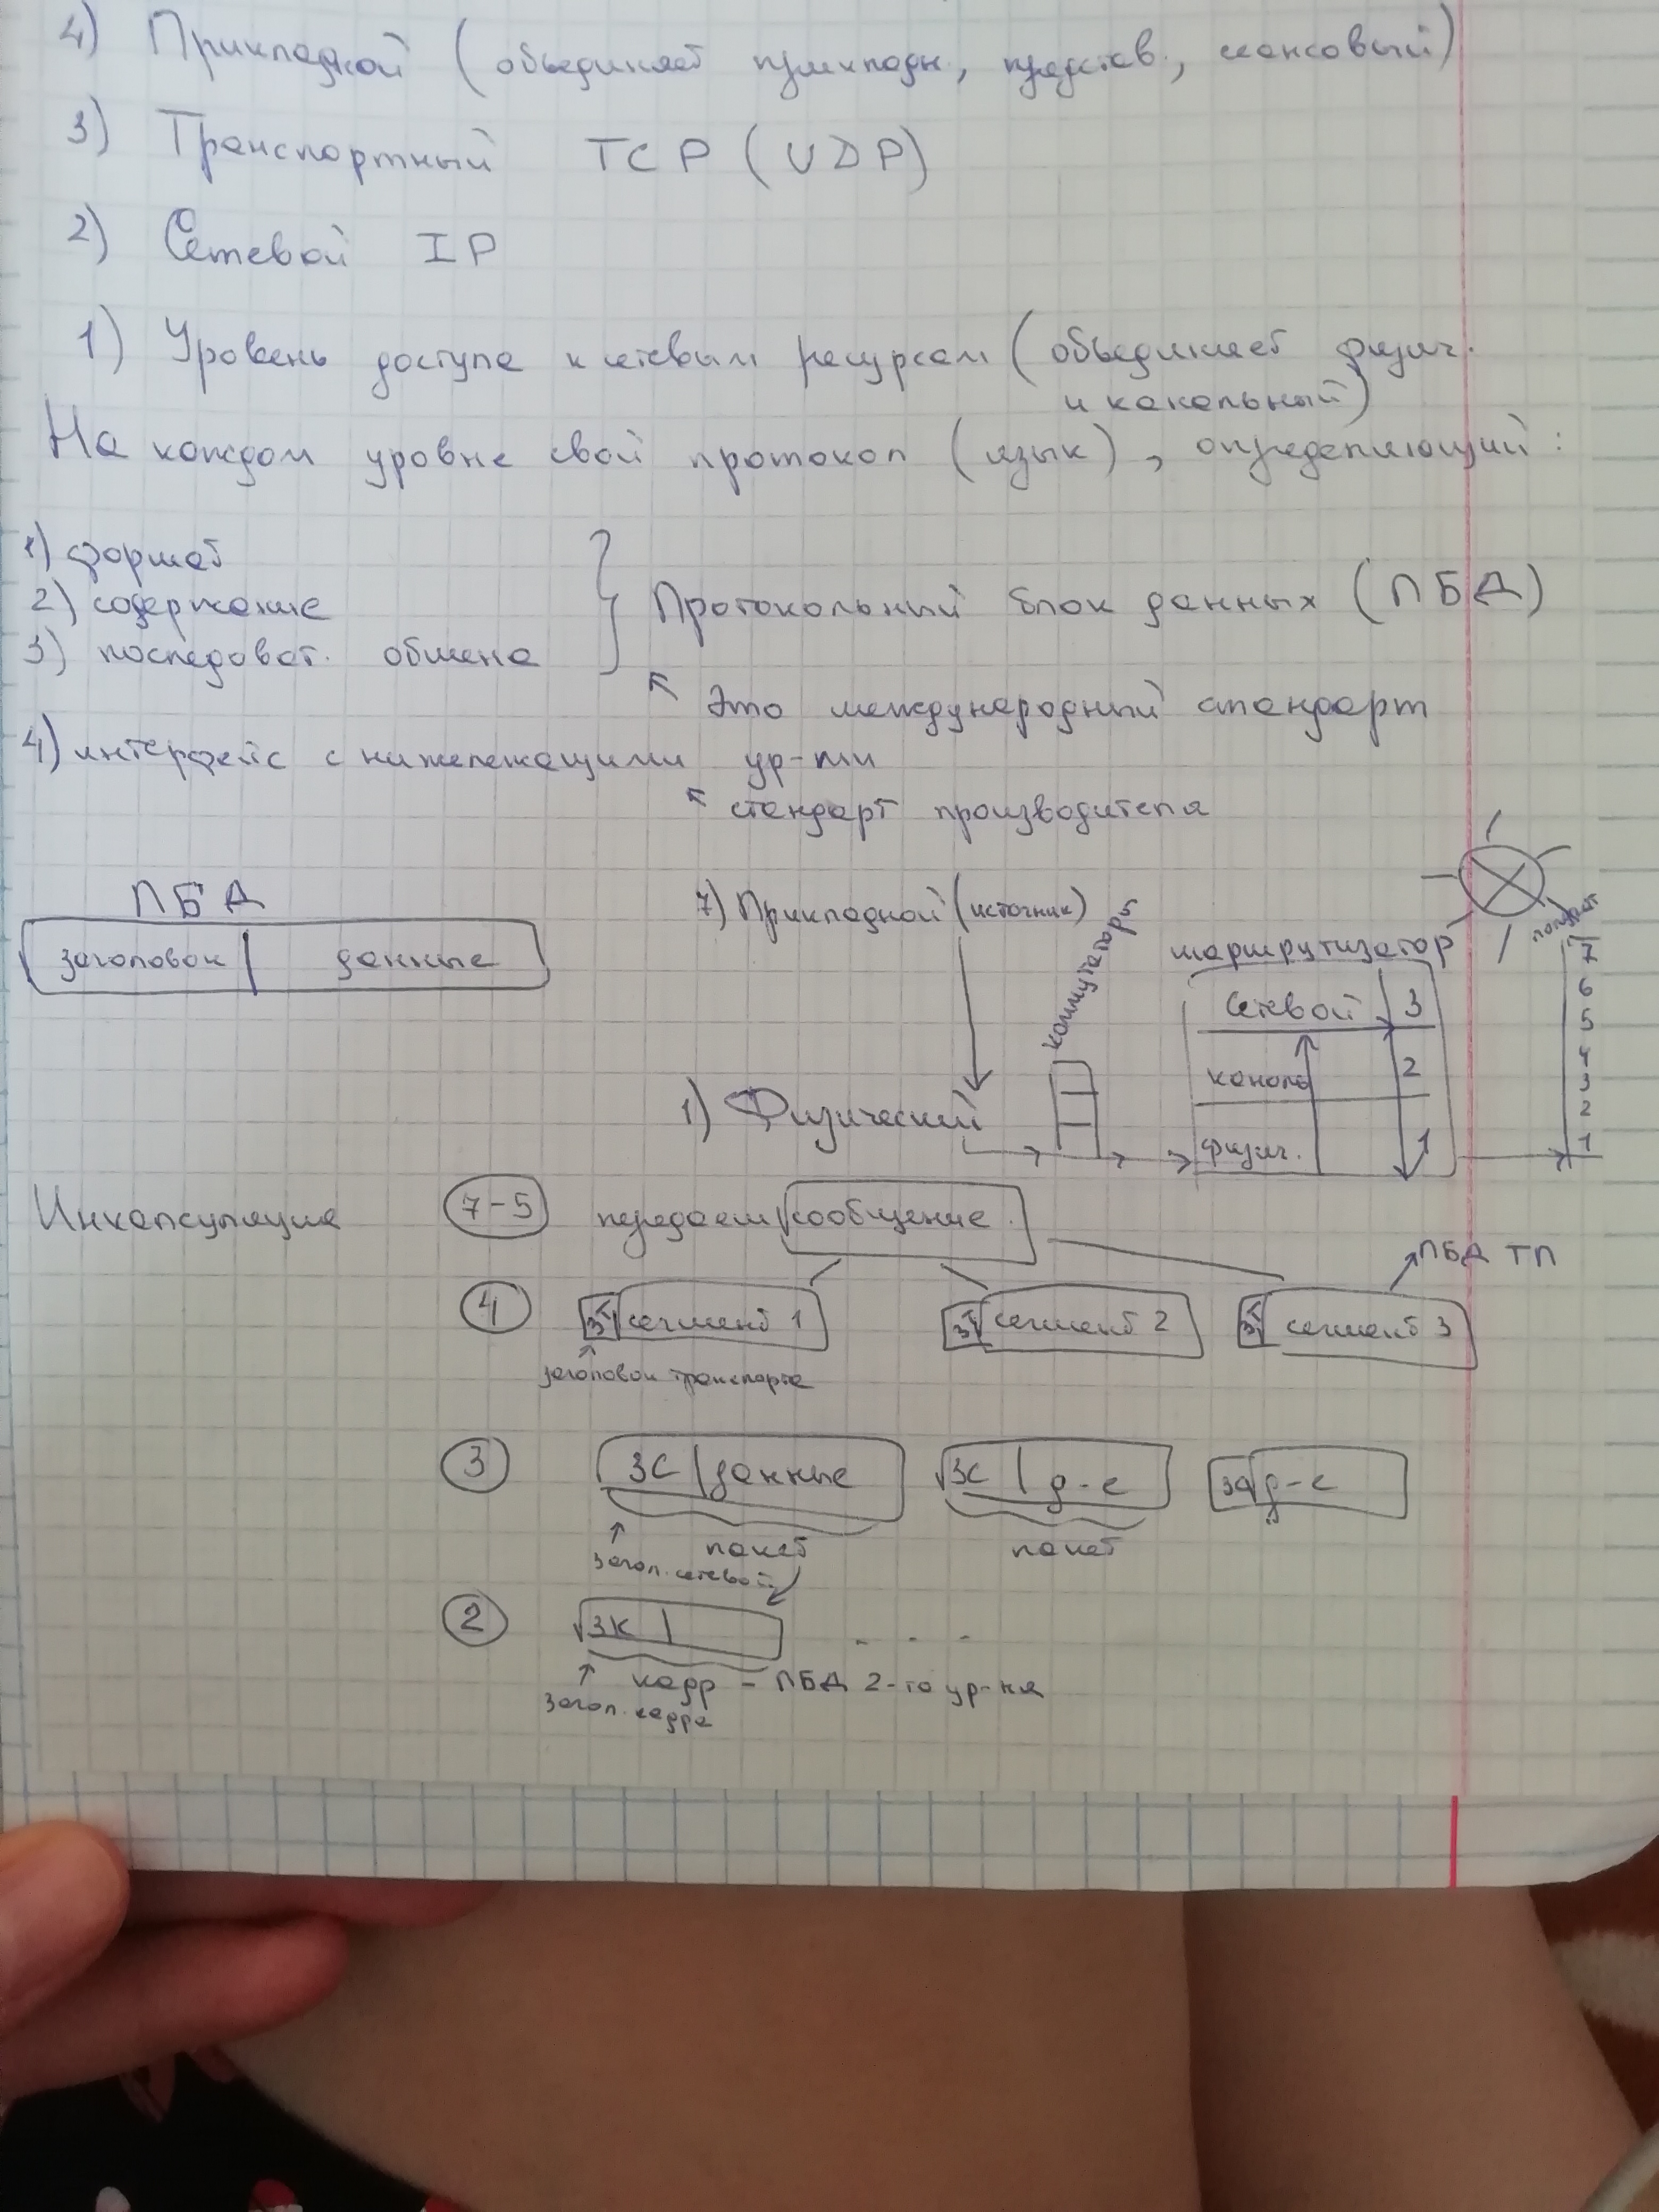 4) Прикладной (объединяет прикладн., представ., сеансовый)
3) Транспортный TCP (UDP)
2) Сетевой IP
1) Уровень доступа к сетевым ресурсам (объединяет физич.
и канальный)
На каждом уровне свой протокол (язык), определяющий:
1) формат
2) содержание
3) последоват. обмена
Протокольный блок данных (ПБД)
Это международный стандарт
4) интерфейс с нижележащими ур-ми
стандарт производителя
ПБД
заголовок | данные
7) Прикладной (источник)
коммутаторы
1) Физический
маршрутизатор
сетевой 3
каналь 2
физич. 1
7
6
5
4
3
2
1
Инкапсуляция
7-5 передаем сообщение
ПБД ТП
4 ЗТ сегмент 1 ЗТ сегмент 2 ЗТ сегмент 3
заголовок транспорта
3 ЗС | данные ЗС | д-е ЗС д-е
пакет пакет
загол. сетевой
2 ЗК | . . .
кадр - ПБД 2-го ур-ня
загол. кадра